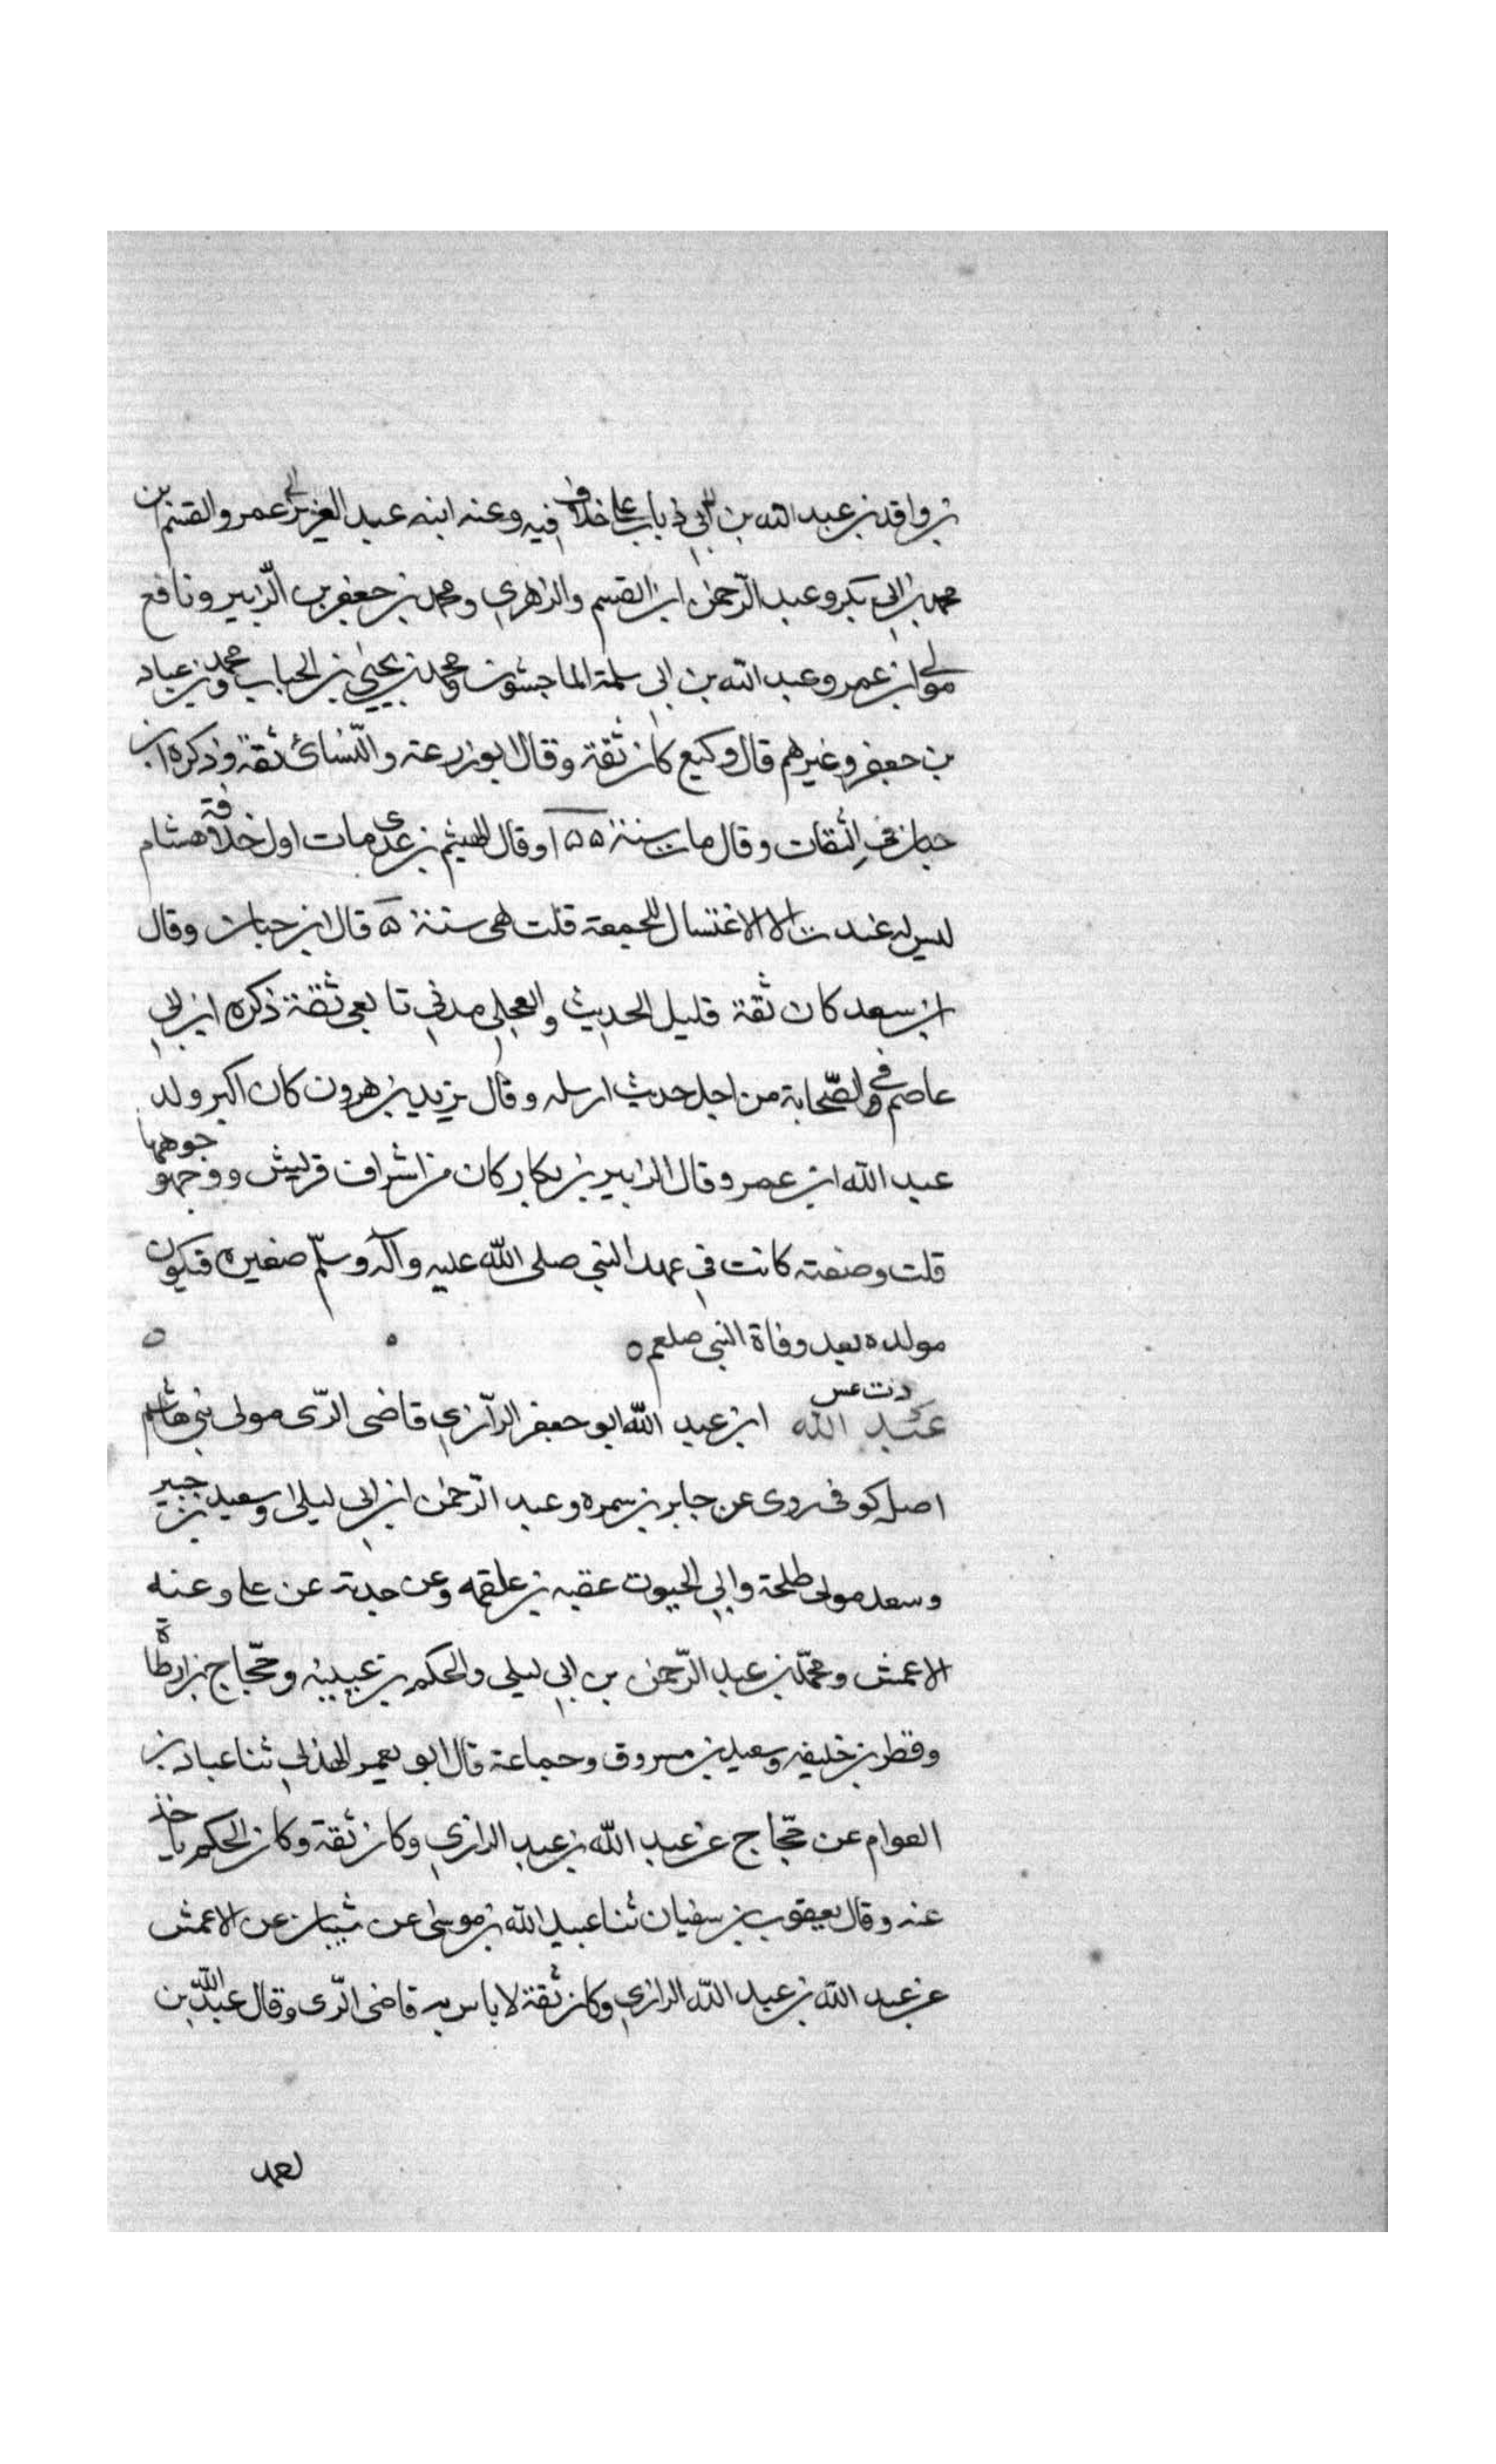 بن واقد بن عبد الله بن ابي ذباب على خلاف فيه وعنه ابنه عبد العزيز عمر والقسم بن
محمد بن ابي بكر وعبد الرّحمن ابن القسم والزهري ومحمد بن جعفر بن الّزبير ونافع
مولى ابن عمر وعبد الله بن ابي سلمة الماجشون ومحمد بن يحيي بن الحباب ومحمد بن عباد
بن جعفر وغيرهم قال وكيع كان ثقة وقال ابو زرعة والنّسائ ثقة وذكره ابن
حبان في الثقات وقال مات سنة ١٥٥ وقال الهيثم بن عدى مات اول خلافة هشام
ليس له عند الا الاغتسال للجمعة قلت هى سنة ٥ قال ابن حبان وقال
ابن سعد كان ثقة قليل الحديث والعجلي مدني تابعى ثقة ذكره ابن ابي
عاصم في الصّحابة من اجل حديث ارسله وقال يزيد بن هرون كان اكبر ولد
عبد الله ابن عمر وقال الزبير بن بكار كان من اشراف قريش ووجوهها
قلت وصفته كانت في عهد النبي صلى الله عليه وآله وسلّم صغيره فتكون
مولده بعد وفاة النبى صلعم ٥
دت عس
عبد الله ابن عبد الله ابو جعفر الرّازي قاضى الرّى مولى بني هاشم
اصله كوفى روى عن جابر بن سمره وعبد الرّحمن ابن ابي ليلى وسعيد بن جبير
وسعد مولى طلحة وابي الحيوت عقبه بن علقمه وعن جدته عن على وعنه
الاعمش ومحمّد بن عبد الرّحمن بن ابي ليلى والحكم بن عيينه وحجّاج بن ارطاة
وقطر بن خليفه وسعيد بن مسروق وجماعة قال ابو يعمر الهذلي ثنا عباد بن
العوام عن حجّاج عن عبد الله بن عبد الرازي وكان ثقة وكان الحكم ياخذ
عنه وقال يعقوب بن سفيان ثنا عبيد الله بن موسى عن شيبان عن الاعمش
عن عبد الله بن عبد الله الرازي وكان ثقة لا باس به قاضى الرّى وقال عبد الله بن